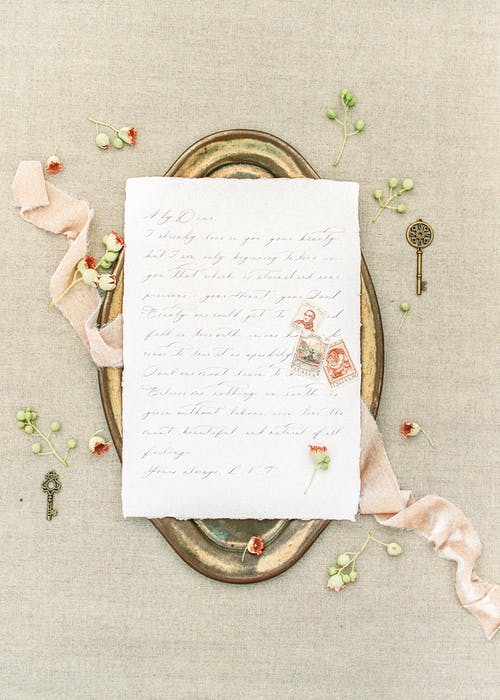 My Dear,
I already love in you your beauty,
but I am only beginning to love in
you that which is eternal and ever
precious - your Heart, your Soul.
Beauty one could get to and
fall in love with in one hour and
cease to love it as speedily
Soul one must learn to
Believe me, nothing on earth is
given without labour, even love, the
most beautiful and natural of all
feelings.
Yours always, L N T
ITALIA
ITALIA